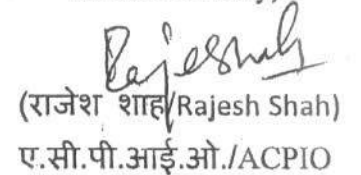 Rajeshah
(राजेश शाह/Rajesh Shah)
ए.सी.पी.आई.ओ./ACPIO